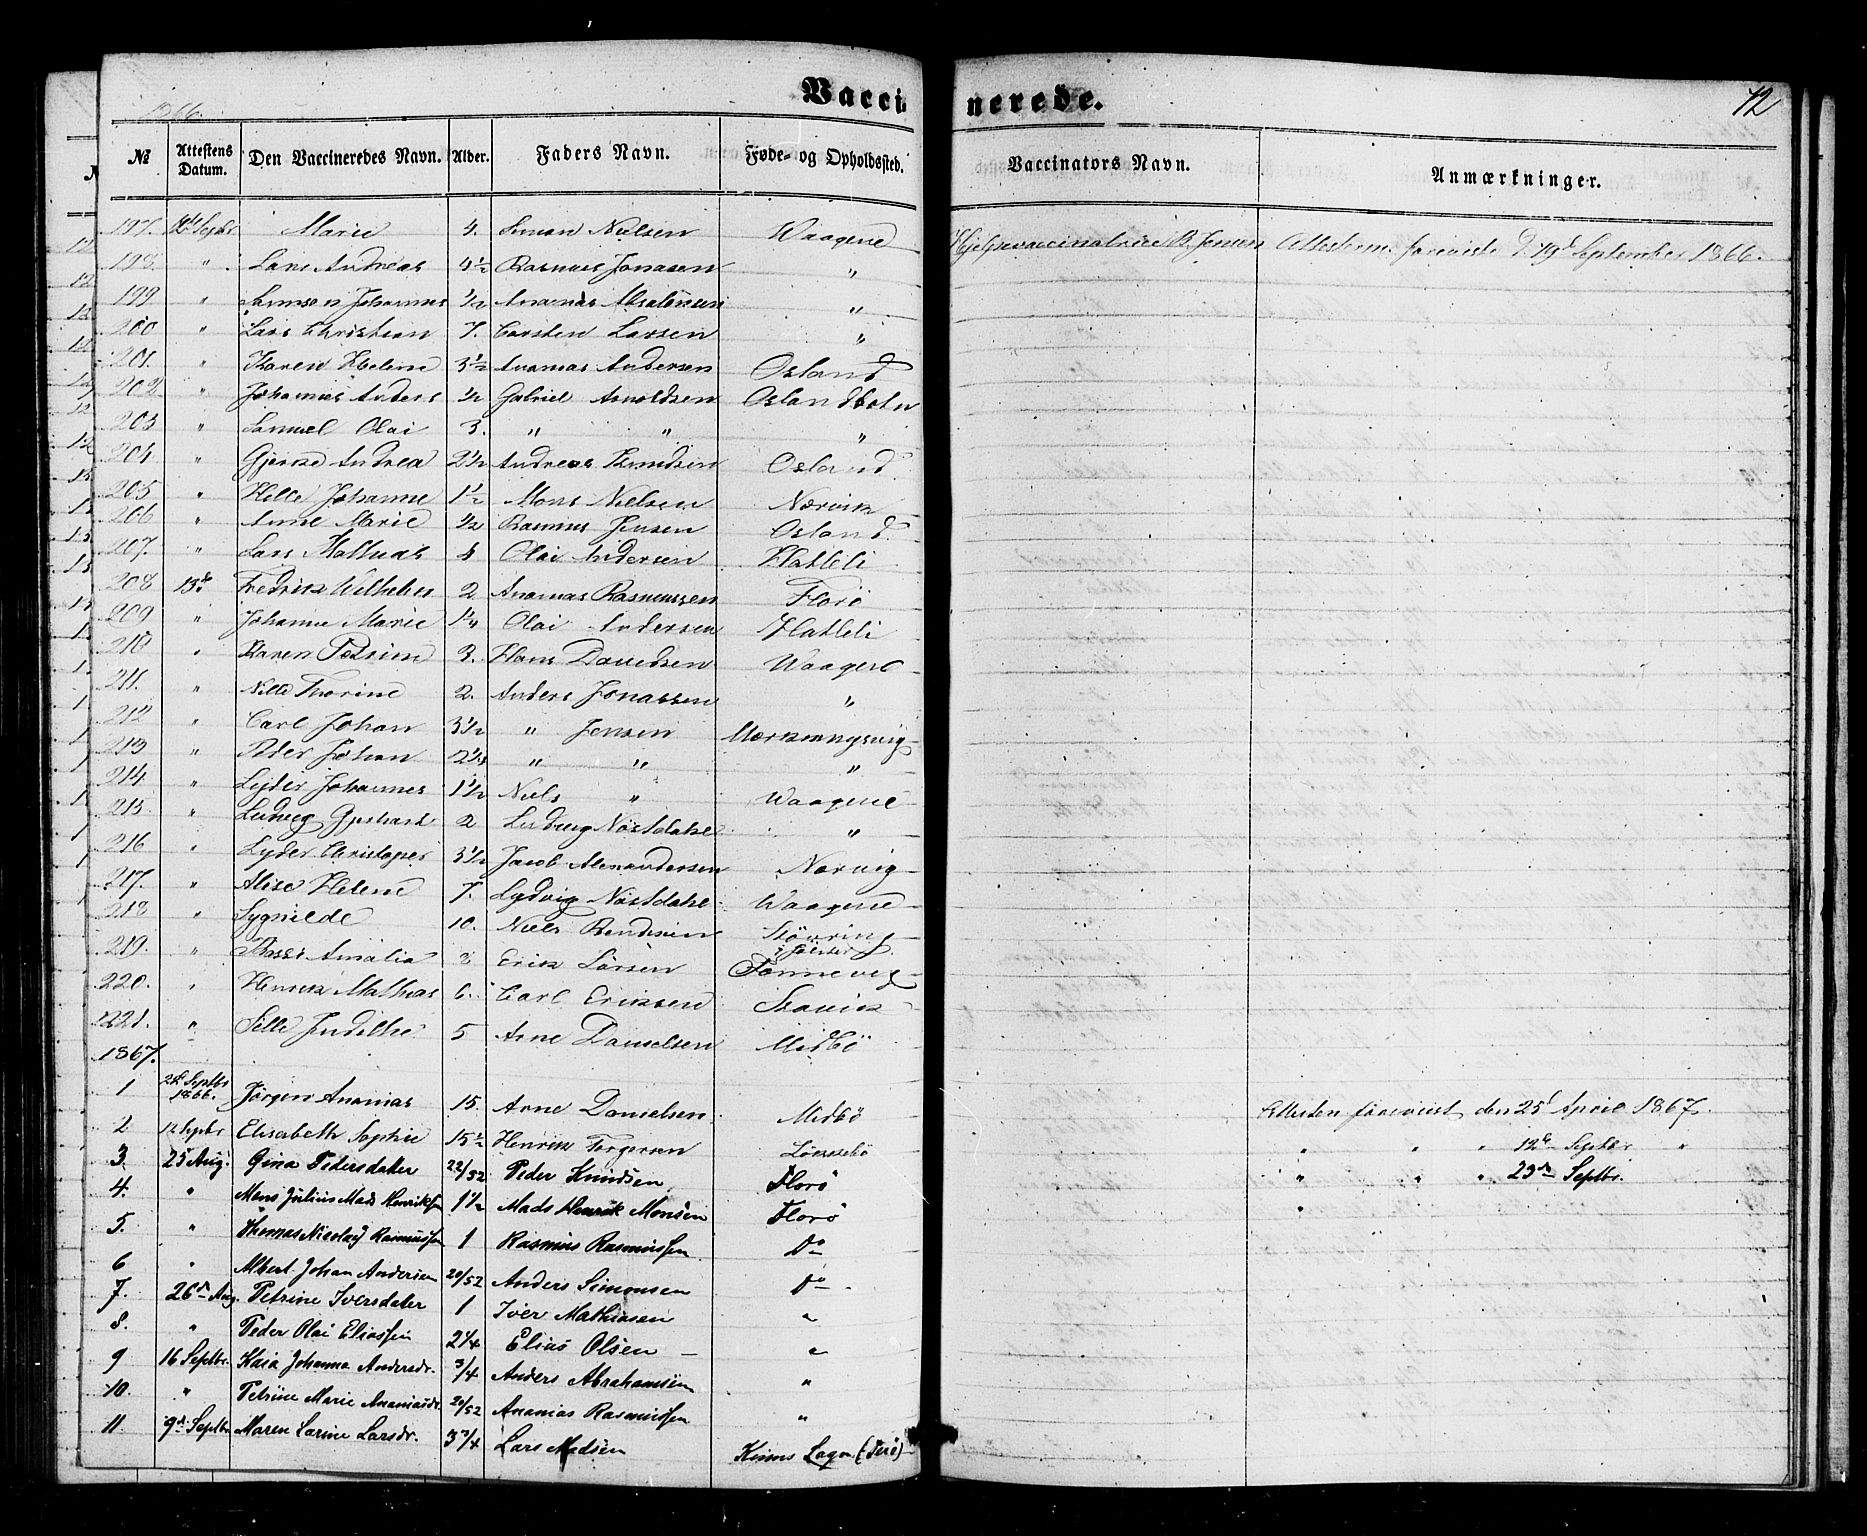 Vaccinerede.
72
1866.
№ Attestens Datum. Den Vaccineredes Navn. Alder. Faders Navn. Føde- og Opholdssted. Vaccinators Navn. Anmærkninger.
197. Septbr Marie 4. Simon Nielsen Waagene Hjelpevaccinatrice B. Jensen Attesterne foreviste d. 19d September 1866.
198. " Lars Andreas 4½ Rasmus Jonasen "
199 " Samson Johannes ½ Ananias Absalonsen "
200 " Lars Christian 7. Carsten Larsen "
201. " Karen Helene 3½ Ananias Andersen Osland
202. " Johannes Anders ½ Gabriel Arnoldsen Oslandbotn
203 " Samuel Olai 3. " " "
204 " Andrea 2½ Andreas Knudsen Osland
205 " Helle Johanne 1½ Mons Nielsen Nærvik
206 " Anne Marie ½ Rasmus Jensen Osland
207. " Lars Mathias 4 Olai Andersen Hatleli
208 13de Fredrik Wilhelm 2 Ananias Rasmussen Florö
209 " Johanne Marie 1¼ Olai Andersen Hatleli
210 " Karen Petrine 3. Hans Davidsen Waagene
211. " Nille Thorine 2. Anders Jonassen "
212 " Carl Johan 3½ " Jensen
213 " Peder Johan 2¼ " " "
214 " Lyder Johannes 1½ Niels " Waagene
215. " Ludvig Gerhard 2 Ludvig Nøstdahl "
216 " Lyder Christopher 3½ Jacob Alexandersen Norvig
217. " Alise Helene 7. Lydvig Nøstdahl Waagene
218 " Sygnilde 10. Niels Bendixen Støvring i Jølster
219. " Amalia 8 Erik Larsen Tonnevig
220. " Henrik Mathias 6. Carl Eriksen Stavik
221. " Sille Judithe 5 Arne Danielsen Midbö
1867.
1 Septbr 1866. Jørgen Ananias 15. Arne Danielsen Midbö Attesten forevist den 25d April 1867.
2 12 Septbr Elisabeth Sophie 15½ Henrik Torgersen " " " 12te Septbr "
3. 25 Aug. Gina Pedersdatter 22/52 Peder Knudsen Florö " " " 23de Septbr.
4. " Mons Julius Mads Henriksen 1½ Mads Henrik Monsen Florö "
5. " Thomas Nicolay Rasmussen 1 Rasmus Rasmussen Do
6 " Albert Johan Andersen 20/52 Anders Simonsen Do
7. 26de Aug. Petrine Iversdatter 1 Iver Mathiasen "
8. " Peder Olai Eliassen 2¼ Elias Olsen "
9 16 Septbr. Kaia Johanna Andersdr. 3/4 Anders Abrahamsen "
10. " Petrine Marie Ananiasdr. 20/52 Ananias Rasmussen "
11. 9de Septbr Maren Larine Larsdr. 3¾ Lars Madsen Kinns Sogn